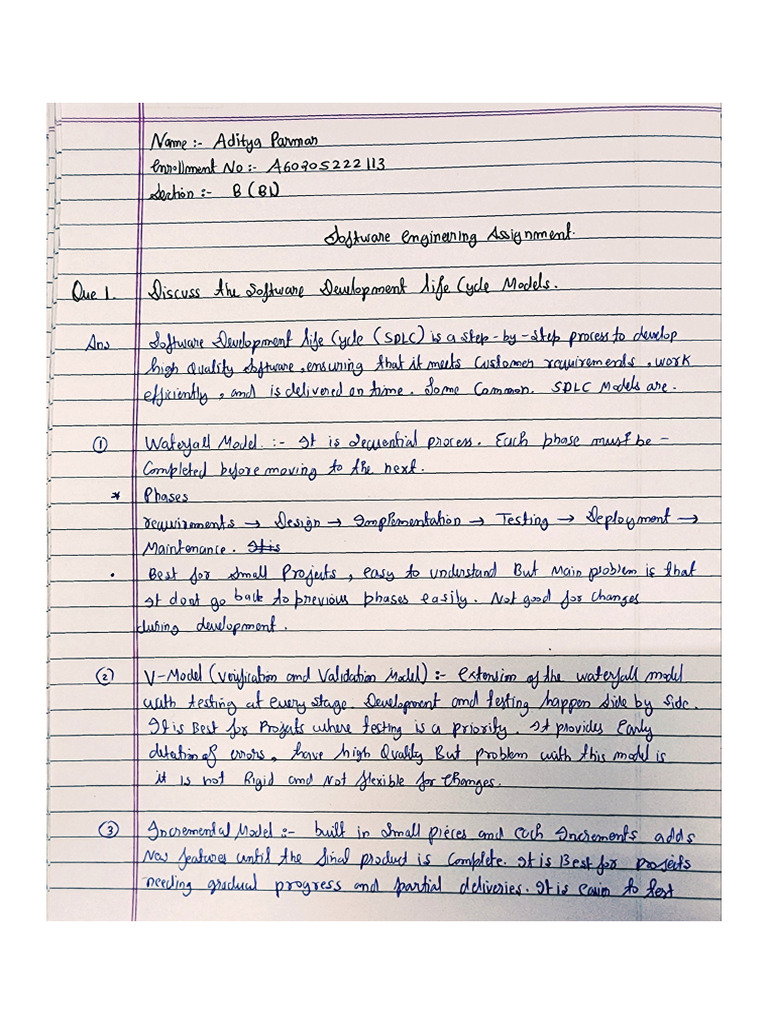 Name :- Aditya Parmar
Enrollment No :- A60205222113
Section :- B (B1)
Software Engineering Assignment.
Que 1. Discuss the Software Development life Cycle Models.
Ans Software Development life Cycle (SDLC) is a step-by-step process to develop
high Quality software, ensuring that it meets Customer requirements, work
efficiently, and is delivered on time. Some Common SDLC Models are.
① Waterfall Model :- It is Sequential process. Each phase must be -
Completed before moving to the next.
* Phases
requirements → Design → Implementation → Testing → Deployment →
Maintenance. It is
• Best for Small Projects, easy to understand But Main problem is that
It dont go back to previous phases easily. Not good for changes
during development.
② V-Model (Verification and Validation Model) :- extension of the waterfall model
with testing at every stage. Development and testing happen side by side.
It is Best for Projects where testing is a priority. It provides Early
detation of errors, have high Quality But problem with this model is
it is not Rigid and Not flexible for Changes.
③ Incremental Model :- built in Small pieces and each Increments adds
New features until the final product is complete. It is Best for projects
needing gradual progress and partial deliveries. It is to test